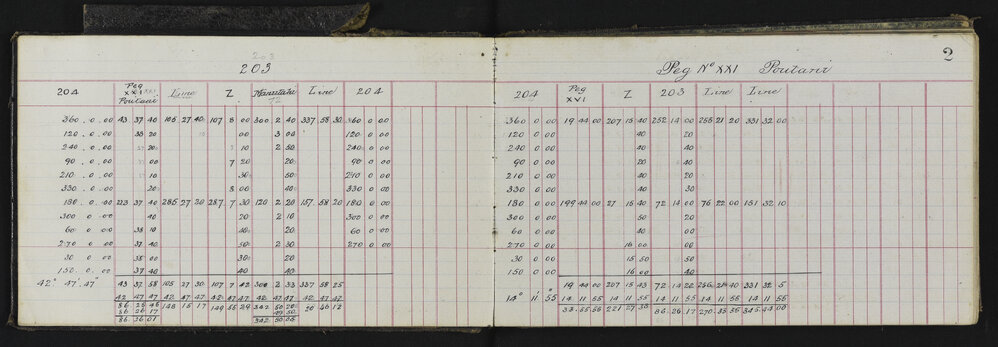 203
203
204 Peg XXI Poutani Line Z Manutahi 72 Line 204
360 . 0 . 00 43 37 40 105 27 40 107 8 00 300 2 40 337 58 30 360 0 00
120 . 0 . 00 38 20 00 3 00 120 0 00
240 . 0 . 00 20 10 2 50 240 0 00
90 . 0 . 00 00 7 20 20 90 0 00
210 . 0 . 00 10 30 50 210 0 00
330 . 0 . 00 20 8 00 40 330 0 00
180 . 0 . 00 223 37 40 285 27 30 287 7 30 120 2 20 157 58 20 180 0 00
300 0 00 40 20 2 10 300 0 00
60 0 00 38 10 40 20 60 0 00
270 . 0 00 37 40 50 2 30 270 0 00
30 0 00 38 00 30 20
150 0 00 37 40 40 40
42° 47' 47" 43 37 58 105 27 30 107 7 42 300 2 33 337 58 25
42 47 47 42 47 47 42 47 47 42 47 47 42 47 47
86 25 45 148 15 17 149 55 29 342 50 20 20 46 12
86 26 17 49 50
86 26 01 342 50 05
2
Peg No XXI Poutani
204 Peg XVI Z 203 Line Line
360 0 00 19 44 00 207 15 40 252 14 00 256 21 20 331 32 00
120 0 00 40 20
240 0 00 40 40
90 0 00 20 20
210 0 00 40 20
330 0 00 40 30
180 0 00 199 44 00 27 15 40 72 14 00 76 22 00 151 32 10
300 0 00 50 20
60 0 00 40 00
270 0 00 16 00 00
30 0 00 15 50 50
150 0 00 16 00 40
19 44 00 207 15 43 72 14 22 256 21 40 331 32 5
14° 11' 55" 14 11 55 14 11 55 14 11 55 14 11 55 14 11 55
33 55 55 221 27 38 86 26 17 270 33 35 345 44 00